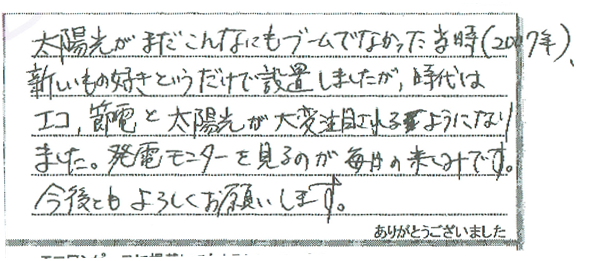 太陽光がまだこんなにもブームでなかった当時(2007年)、
新しいもの好きというだけで設置しましたが、時代は
エコ、節電と太陽光が大変注目されるようになり
ました。発電モニターを見るのが毎月の楽しみです。
今後ともよろしくお願いします。
ありがとうございました